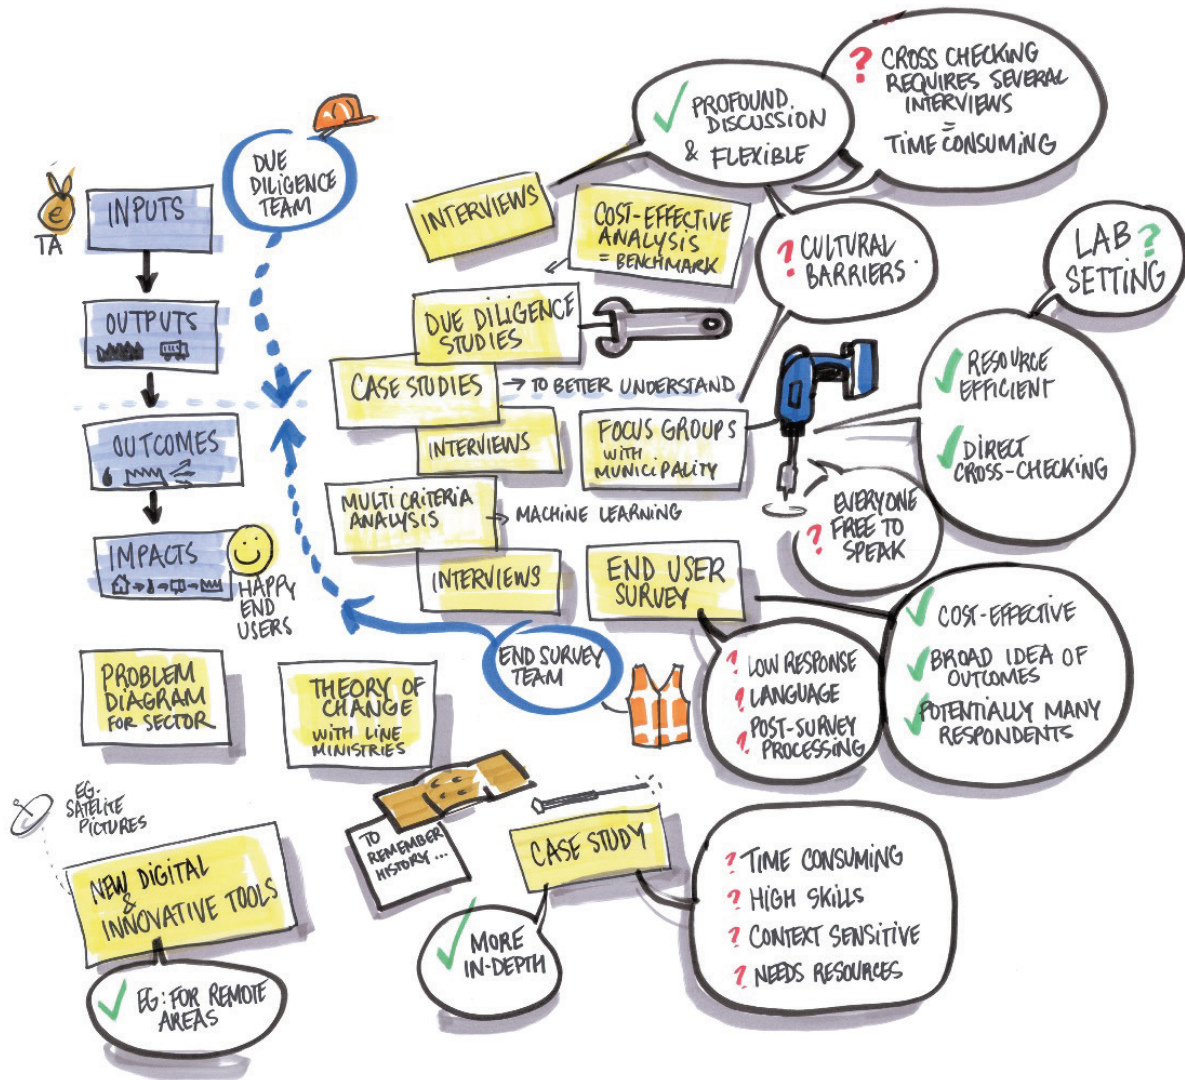 DUE
DILIGENCE
TEAM
e
TA
INPUTS
OUTPUTS
OUTCOMES
IMPACTS
HAPPY
END
USERS
INTERVIEWS
✓ PROFOUND
DISCUSSION
& FLEXIBLE
? CROSS CHECKING
REQUIRES SEVERAL
INTERVIEWS
=
TIME CONSUMING
COST-EFFECTIVE
ANALYSIS
= BENCHMARK
? CULTURAL
BARRIERS.
LAB ?
SETTING
DUE DILIGENCE
STUDIES
CASE STUDIES
→ TO BETTER UNDERSTAND
INTERVIEWS
FOCUS GROUPS
WITH
MUNICIPALITY
✓ RESOURCE
EFFICIENT
✓ DIRECT
CROSS-CHECKING
EVERYONE
FREE TO
? SPEAK
MULTI CRITERIA
ANALYSIS
→ MACHINE LEARNING
INTERVIEWS
END USER
SURVEY
END SURVEY
TEAM
? LOW RESPONSE
? LANGUAGE
? POST-SURVEY
PROCESSING
✓ COST-EFFECTIVE
✓ BROAD IDEA OF
OUTCOMES
✓ POTENTIALLY MANY
RESPONDENTS
PROBLEM
DIAGRAM
FOR SECTOR
THEORY OF
CHANGE
WITH LINE
MINISTRIES
EG.
SATELITE
PICTURES
NEW DIGITAL
&
INNOVATIVE TOOLS
✓ EG: FOR REMOTE
AREAS
TO
REMEMBER
HISTORY...
CASE STUDY
✓ MORE
IN-DEPTH
? TIME CONSUMING
? HIGH SKILLS
? CONTEXT SENSITIVE
? NEEDS RESOURCES